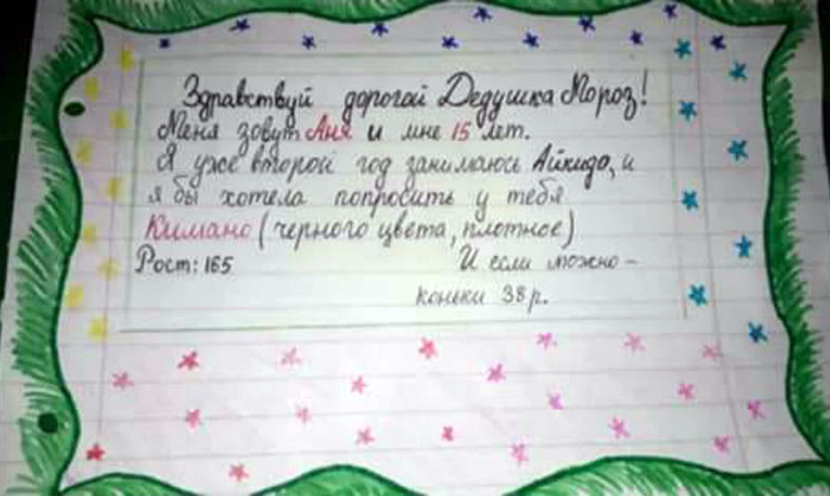 Здравствуй дорогой Дедушка Мороз!
Меня зовут Аня и мне 15 лет.
Я уже второй год занимаюсь Айкидо, и
я бы хотела попросить у тебя
Кимано (черного цвета, плотное)
Рост: 165 И если можно -
коньки 38 р.